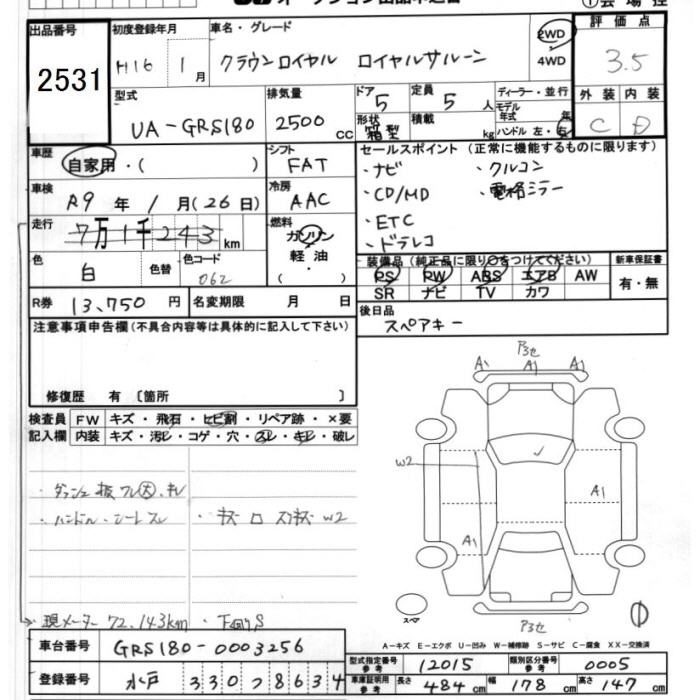 出品番号
2531
初度登録年月
H16 1月
車名・グレード
クラウンロイヤル ロイヤルサルーン
2WD
4WD
評価点
3.5
型式
UA-GRS180
排気量
2500 CC
ドア
5
形状
箱型
定員
5 人
積載
kg
ディーラー・並行
モデル年式 年
ハンドル 左・右
外装 内装
C D
車歴
自家用・( )
シフト
FAT
車検
R9年 1月(26日)
冷房
AAC
走行
7万1千243km
燃料
ガソリン
軽油
・
( )
色
白
色替
色コード
062
R券 13,750円
名変期限 月 日
セールスポイント(正常に機能するものに限ります)
・ナビ ・クルコン
・CD/MD ・電格ミラー
・ETC
・ドラレコ
装備品(純正品に限り○をつけてください)
PS PW ABS エアB AW
SR ナビ TV カワ
新車保証書
有・無
後日品
スペアキー
注意事項申告欄(不具合内容等は具体的に記入して下さい)
修復歴 有〔箇所 〕
検査員記入欄
FW キズ・飛石・ヒビ割・リペア跡・×要
内装 キズ・汚レ・コゲ・穴・スレ・キレ・破レ
・ハンドル・シートスレ
現メーター 72,143km ・下回りS
車台番号 GRS180-0003256
登録番号 水戸 330つ8634
A1 A1 A1
W2
A1
A1
スペア
A=キズ E=エクボ U=凹み W=補修跡 S=サビ C=腐食 XX=交換済
型式指定番号 参考 12015
類別区分番号 参考 0005
車庫証明用 参考 長さ 484cm 幅 178cm 高さ 147cm